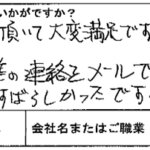 いかがですか?
頂いて大変満足です
の連絡をメールで
すばらしかったです
会社名またはご職業